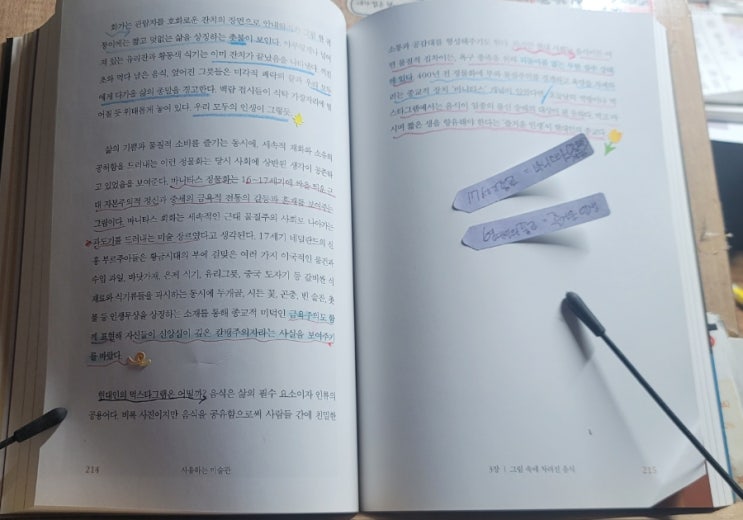 화가는 관람자를 호화로운 잔치의 장면으로
꽃이에는 짧고 덧없는 삶을 상징하는 촛불이 보인다.
져 있는 유리잔과 황동색 식기는 이미 잔치가 끝났음을
초와 먹다 남은 음식, 엎어진 그릇들은 미각적 쾌락의 끝과 우리 모두
에게 다가올 삶의 종말을 경고한다. 백랍 접시들이 식탁 가장자리에 떨
어질 듯 위태롭게 놓여 있다. 우리 모두의 인생이 그렇듯.
삶의 기쁨과 물질적 소비를 즐기는 동시에, 세속적 재화와 소유의
공허함을 드러내는 이런 정물화는 당시 사회에 상반된 생각이 공존하
고 있었음을 보여준다. 바니타스 정물화는 16~17세기에 싹을 틔운 근
대 자본주의적 정신과 중세의 금욕적 전통의 갈등과 혼재를 보여주는
그림이다. 바니타스 회화는 세속적인 근대 물질주의 사회로 나아가는
과도기를 드러내는 미술 장르였다고 생각된다. 17세기 네덜란드의 신
흥 부르주아들은 황금시대의 부에 걸맞은 여러 가지 이국적인 물건과
수입 과일, 바닷가재, 은제 식기, 유리그릇, 중국 도자기 등 값비싼 식
재료와 식기류들을 과시하는 동시에 누개골, 시든 꽃, 곤충, 빈 술잔, 촛
불 등 인생무상을 상징하는 소재를 통해 종교적 미덕인 금욕주의도 함
께 표현해 자신들이 신앙심이 깊은 칼뱅주의자라는 사실을 보여주기
를 바랐다.
현대인의 먹스타그램은 어떨까? 음식은 삶의 필수 요소이자 인류의
공용어다. 비록 사진이지만 음식을 공유함으로써 사람들 간에 친밀한
214
사유하는 미술관
소통과 공감대를 형성해주기도 한다.
런 물질적 집착이는, 욕구 충족을 위한
400년 전 정물화에 부와 물질주의를 경계하고 욕망을 자제하
라는 종교적 장치 '바니타스' 개념이 있었다면, 오늘날의
스타그램에서는 음식이 일종의
시며 짧은 생을 향유해야 한다는 '즐거운 인생'이 현대인의 종교다.
3장 | 그림 속에 차려진 음식
215